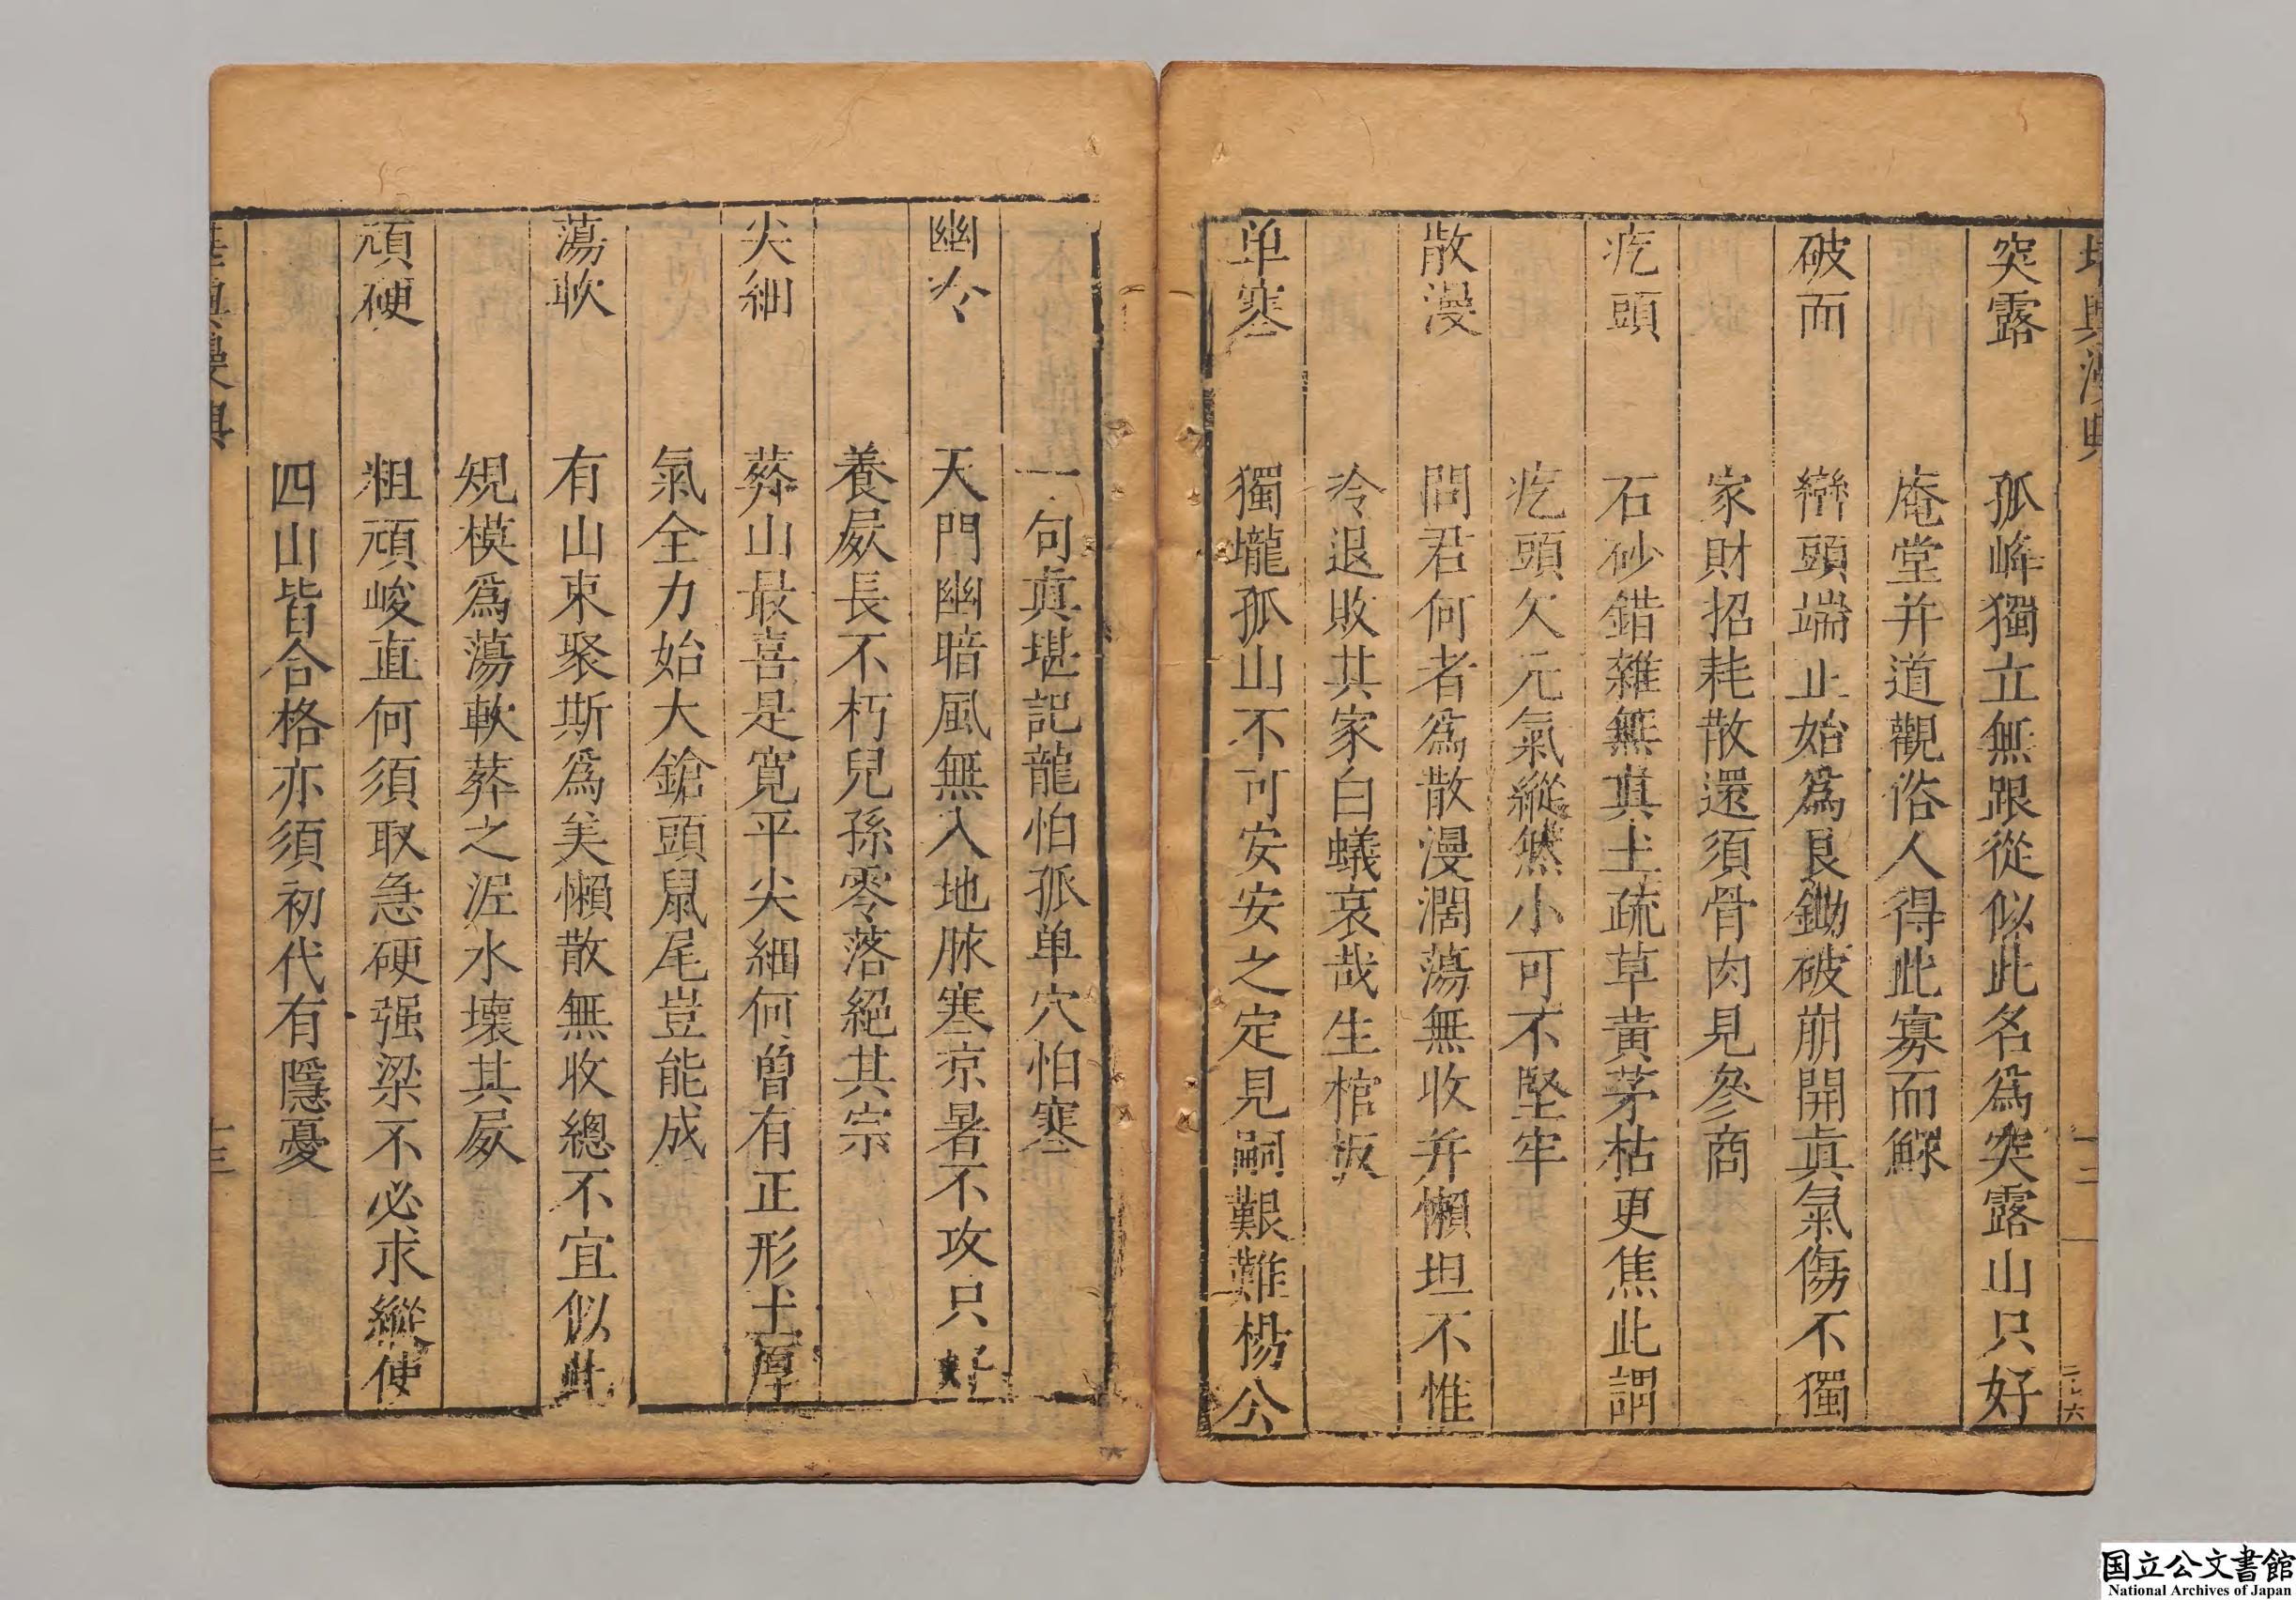 突露　孤峰獨立無跟從似此名爲突露山只好
庵堂并道觀俗人得此寡而鰥
破面　巒頭端正始爲良鋤破崩開眞氣傷不獨
家財招耗散還須骨肉見參商
疙頭　石砂錯雜無真土疏草黄茅枯更焦此謂
疙頭欠元氣縱然小可不堅牢
散漫　問君何者爲散漫濶蕩無收并懶坦不惟
冷退敗其家白蟻哀哉生棺板
单寒　獨壠孤山不可安安之定見嗣艱難楊公
一句真堪記龍怕孤单穴怕寒
幽冷　天門幽暗風無入地脉寒凉暑不攻只好
養屍長不朽兒孫零落絕其宗
尖細　葬山最喜是寛平尖細何曾有正形土厚
氣全力始大鎗頭鼠尾豈能成
蕩軟　有山束聚斯爲美懶散無收總不宜似此
規模爲蕩軟葬之泥水壞其屍
頑硬　粗頑峻直何須取急硬强梁不必求縱使
四山皆合格亦須初代有隱憂
十三
国立公文書館
National Archives of Japan